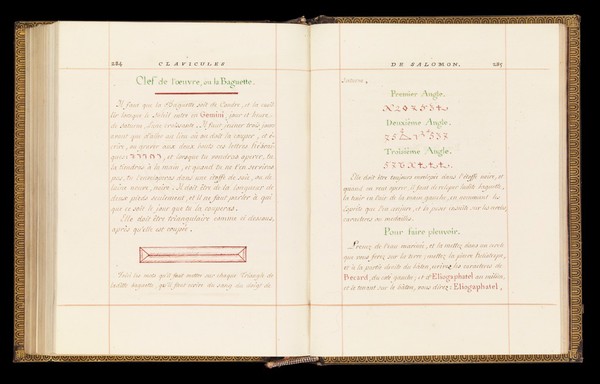 284 CLAVICULES
Clef de l'oeuvre, ou la Baguette.
Il faut que la Baguette soit de Coudre, et la
lir lorsque le Soleil entre en Gemini, jour et heure
de Saturne, Lune croissante. Il faut jeuner trois jours
avant que d'aller au lieu où on doit la couper, et
et graver aux deux bouts ces lettres hébraï-
ques: et lorsque tu voudras opérer, tu
la tiendras à la main, et quand tu ne t'en serviras
pas, tu l'enveloperas dans une étoffe de soie, ou de
laine neuve, noire. Il doit être de la longueur de
deux pieds seulement, et il ne faut parler à qui
que ce soit le jour que tu la couperas.
Elle doit être triangulaire comme ci dessous,
après qu'elle est coupée.
Voici les mots qu'il faut mettre sur chaque Triangle de
ladite baguette, qu'il faut écrire du sang du doigt de
DE SALOMON. 285
Saturne.
Premier Angle.
Deuxième Angle.
Troisième Angle.
Elle doit être toujours enveloppée dans l'étoffe noire, et
quand on veut opérer, il faut développer ladite baguette,
la tenir en l'air de la main gauche, en nommant les
Esprits que l'on invoque, et la poser ensuite sur les
caractères ou médailles.
Pour faire pleuvoir.
Prenez de l'eau marine, et la mettez dans un
que vous ferez sur la terre; mettez la pierre
et à la partie droite du bâton, écrivez les caractères de
Bécard, du côté gauche; et d'Eliogaphatel au milieu,
et le tenant sur le bâton, vous direz: Eliogaphatel,